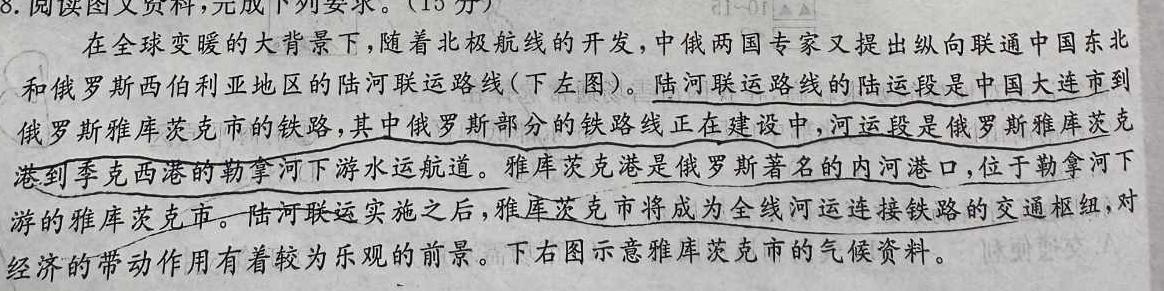 8. 阅读图文资料,完成下列要求。(15分)
在全球变暖的大背景下,随着北极航线的开发,中俄两国专家又提出纵向联通中国东北
和俄罗斯西伯利亚地区的陆河联运路线(下左图)。陆河联运路线的陆运段是中国大连市到
俄罗斯雅库茨克市的铁路,其中俄罗斯部分的铁路线正在建设中,河运段是俄罗斯雅库茨克
港到季克西港的勒拿河下游水运航道。雅库茨克港是俄罗斯著名的内河港口,位于勒拿河下
游的雅库茨克市。陆河联运实施之后,雅库茨克市将成为全线河运连接铁路的交通枢纽,对
经济的带动作用有着较为乐观的前景。下右图示意雅库茨克市的气候资料。